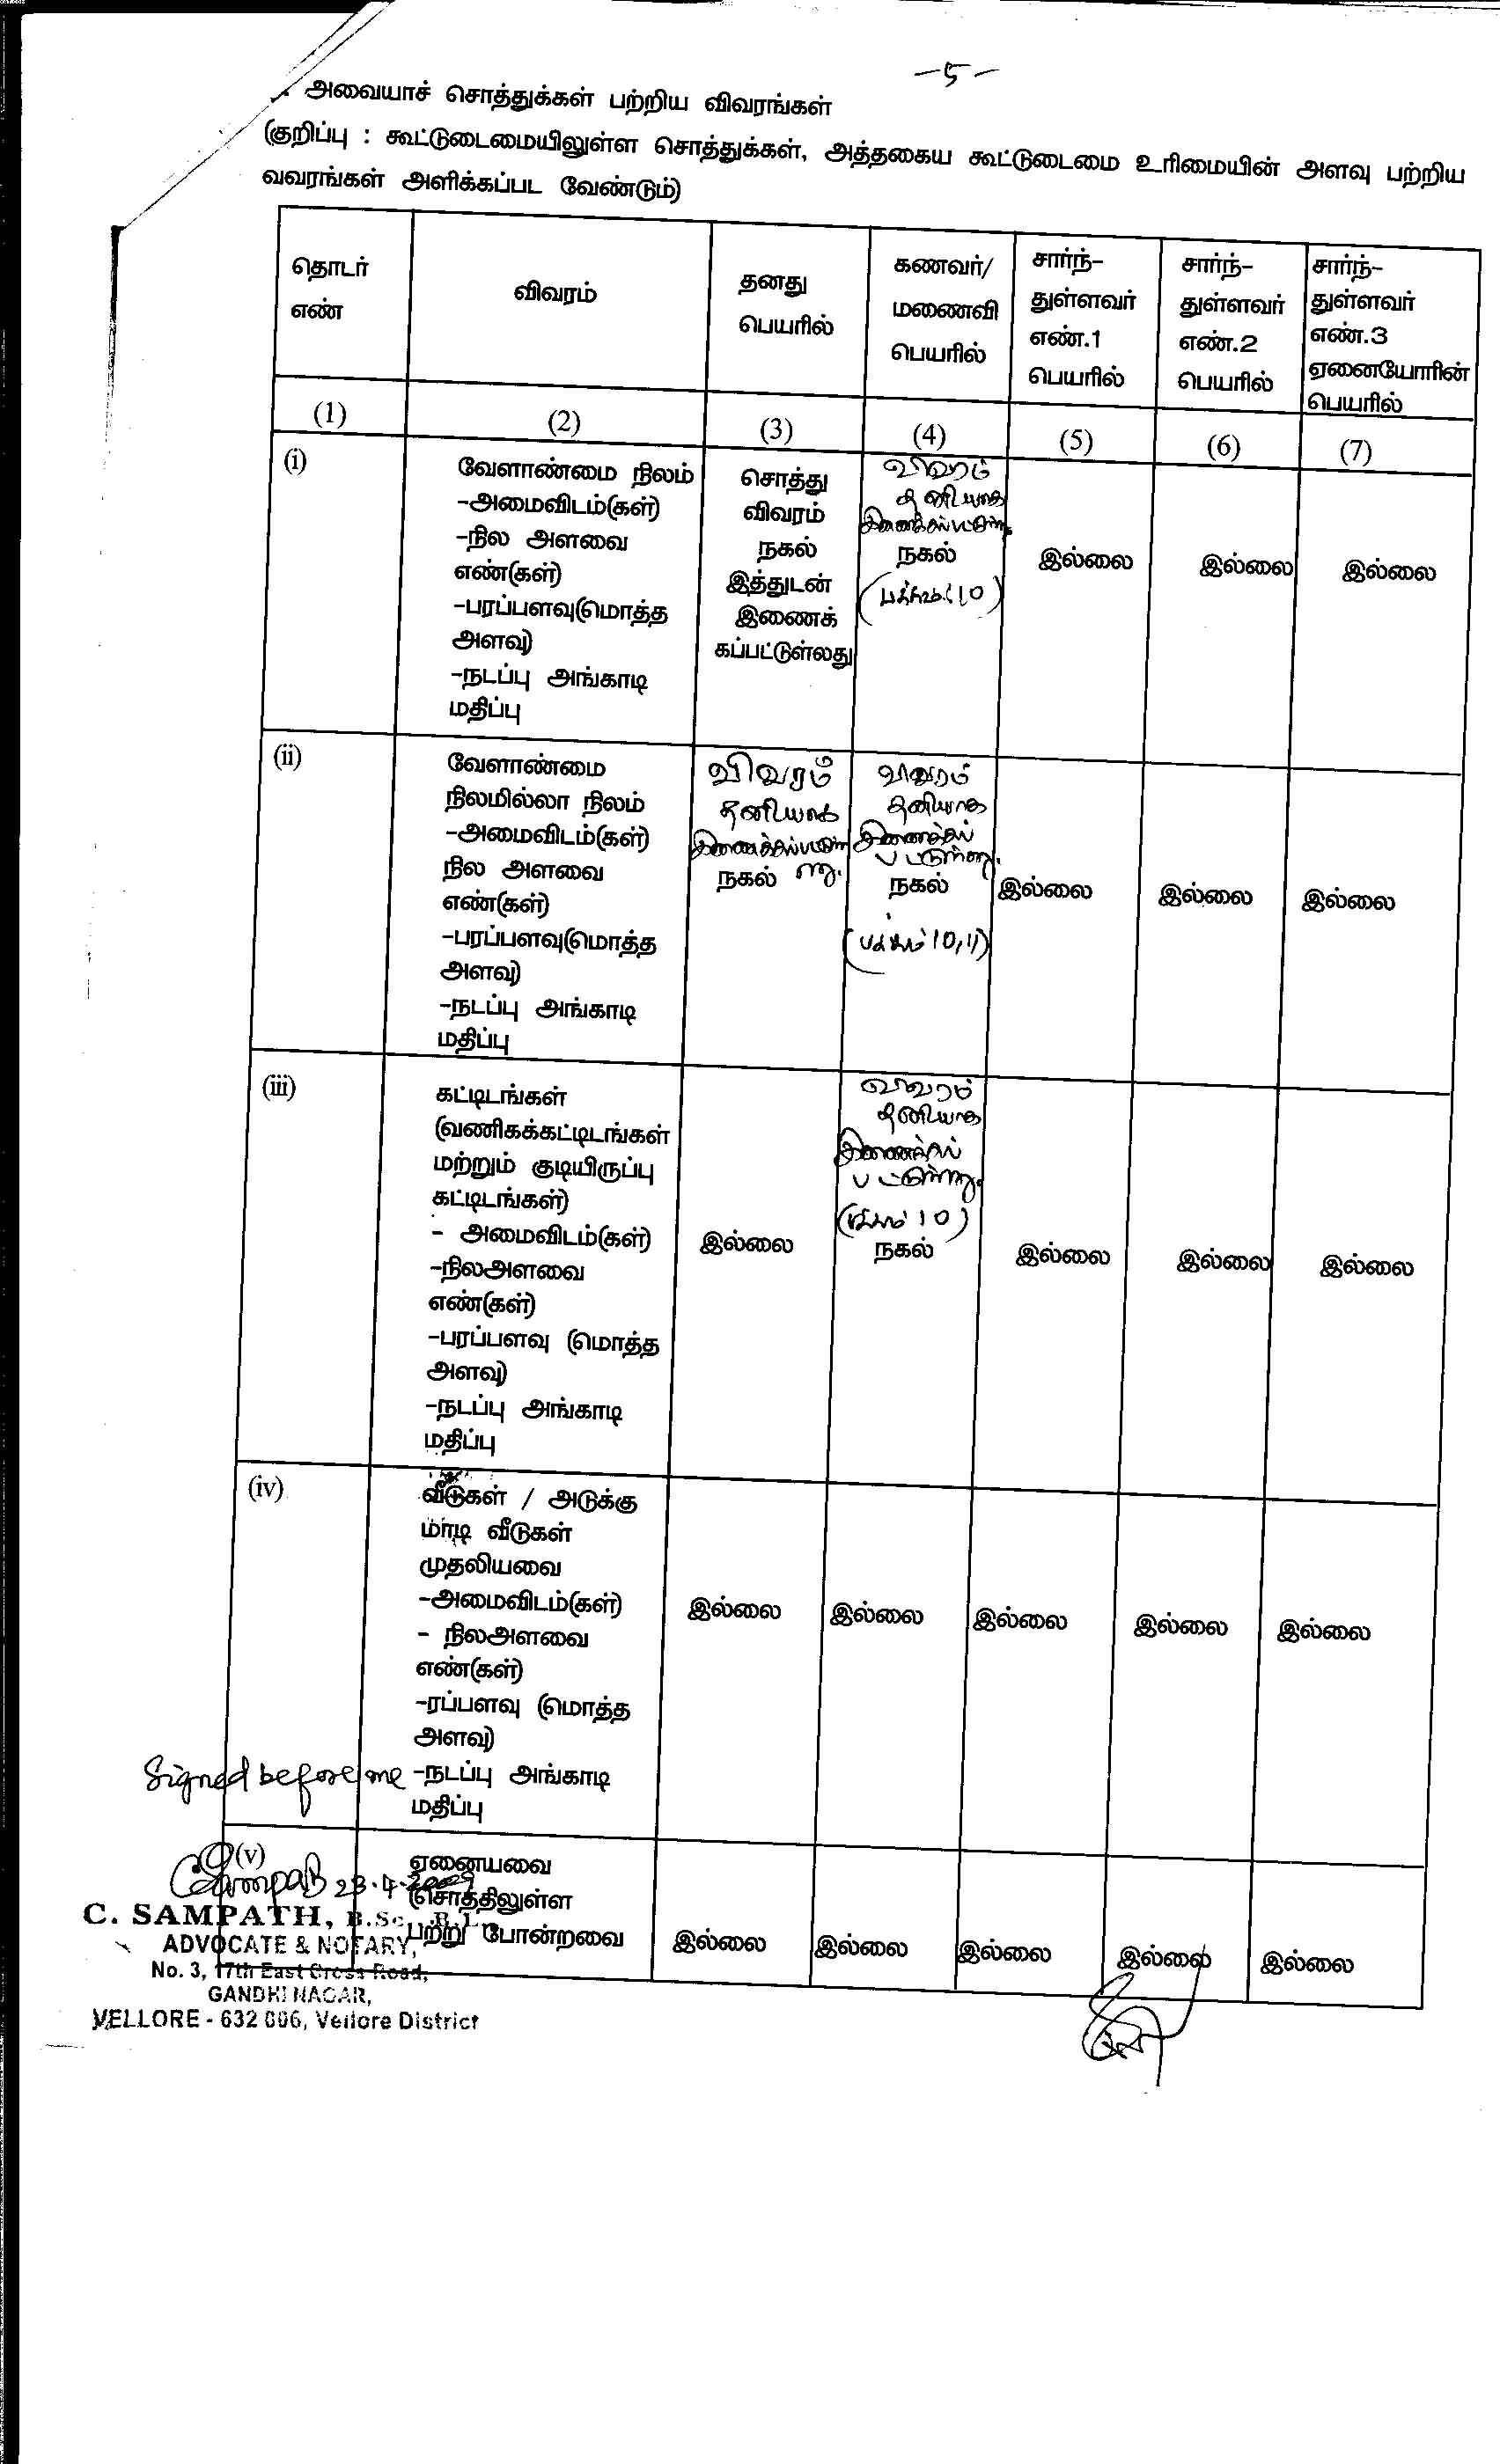 -5-
அவையாச் சொத்துக்கள் பற்றிய விவரங்கள்
(குறிப்பு : கூட்டுடைமையிலுள்ள சொத்துக்கள், அத்தகைய கூட்டுடைமை உரிமையின் அளவு பற்றிய
வவரங்கள் அளிக்கப்பட வேண்டும்)
தொடர்
எண்
விவரம்
தனது
பெயரில்
கணவர்/
மணைவி
பெயரில்
சார்ந்-
துள்ளவர்
எண்.1
பெயரில்
சார்ந்-
துள்ளவர்
எண்.2
பெயரில்
சார்ந்-
துள்ளவர்
எண்.3
ஏனையோரின்
பெயரில்
(1) (2) (3) (4) (5) (6) (7)
(i)
வேளாண்மை நிலம்
-அமைவிடம்(கள்)
-நில அளவை
எண்(கள்)
-பரப்பளவு(மொத்த
அளவு)
-நடப்பு அங்காடி
மதிப்பு
சொத்து
விவரம்
நகல்
இத்துடன்
இணைக்
கப்பட்டுள்லது
விவரம்
தனியாக
இணைக்கப்பட்டுள்ளது.
நகல்
(பக்கம் 10)
இல்லை இல்லை இல்லை
(ii)
வேளாண்மை
நிலமில்லா நிலம்
-அமைவிடம்(கள்)
நில அளவை
எண்(கள்)
-பரப்பளவு(மொத்த
அளவு)
-நடப்பு அங்காடி
மதிப்பு
விவரம்
தனியாக
இணைக்கப்பட்டுள்
ளது.
நகல்
விவரம்
தனியாக
இணைக்கப்
பட்டுள்ளது.
நகல்
(பக்கம் 10,11)
இல்லை இல்லை இல்லை
(iii)
கட்டிடங்கள்
(வணிகக்கட்டிடங்கள்
மற்றும் குடியிருப்பு
கட்டிடங்கள்)
- அமைவிடம்(கள்)
-நிலஅளவை
எண்(கள்)
-பரப்பளவு (மொத்த
அளவு)
-நடப்பு அங்காடி
மதிப்பு
இல்லை
விவரம்
தனியாக
இணைக்கப்
பட்டுள்ளது.
(பக்கம் 10)
நகல்
இல்லை இல்லை இல்லை
(iv)
வீடுகள் / அடுக்கு
மாடி வீடுகள்
முதலியவை
-அமைவிடம்(கள்)
- நிலஅளவை
எண்(கள்)
-ரப்பளவு (மொத்த
அளவு)
-நடப்பு அங்காடி
மதிப்பு
இல்லை இல்லை இல்லை இல்லை இல்லை
Signed before me
(v)
ஏனையவை
(சொத்திலுள்ள
பற்று போன்றவை
இல்லை இல்லை இல்லை இல்லை இல்லை
CSampath 23.4.2009
C. SAMPATH, B.Sc., B.L.,
ADVOCATE & NOTARY,
No. 3, 17th East Cross Road,
GANDHI NAGAR,
VELLORE - 632 006, Vellore District